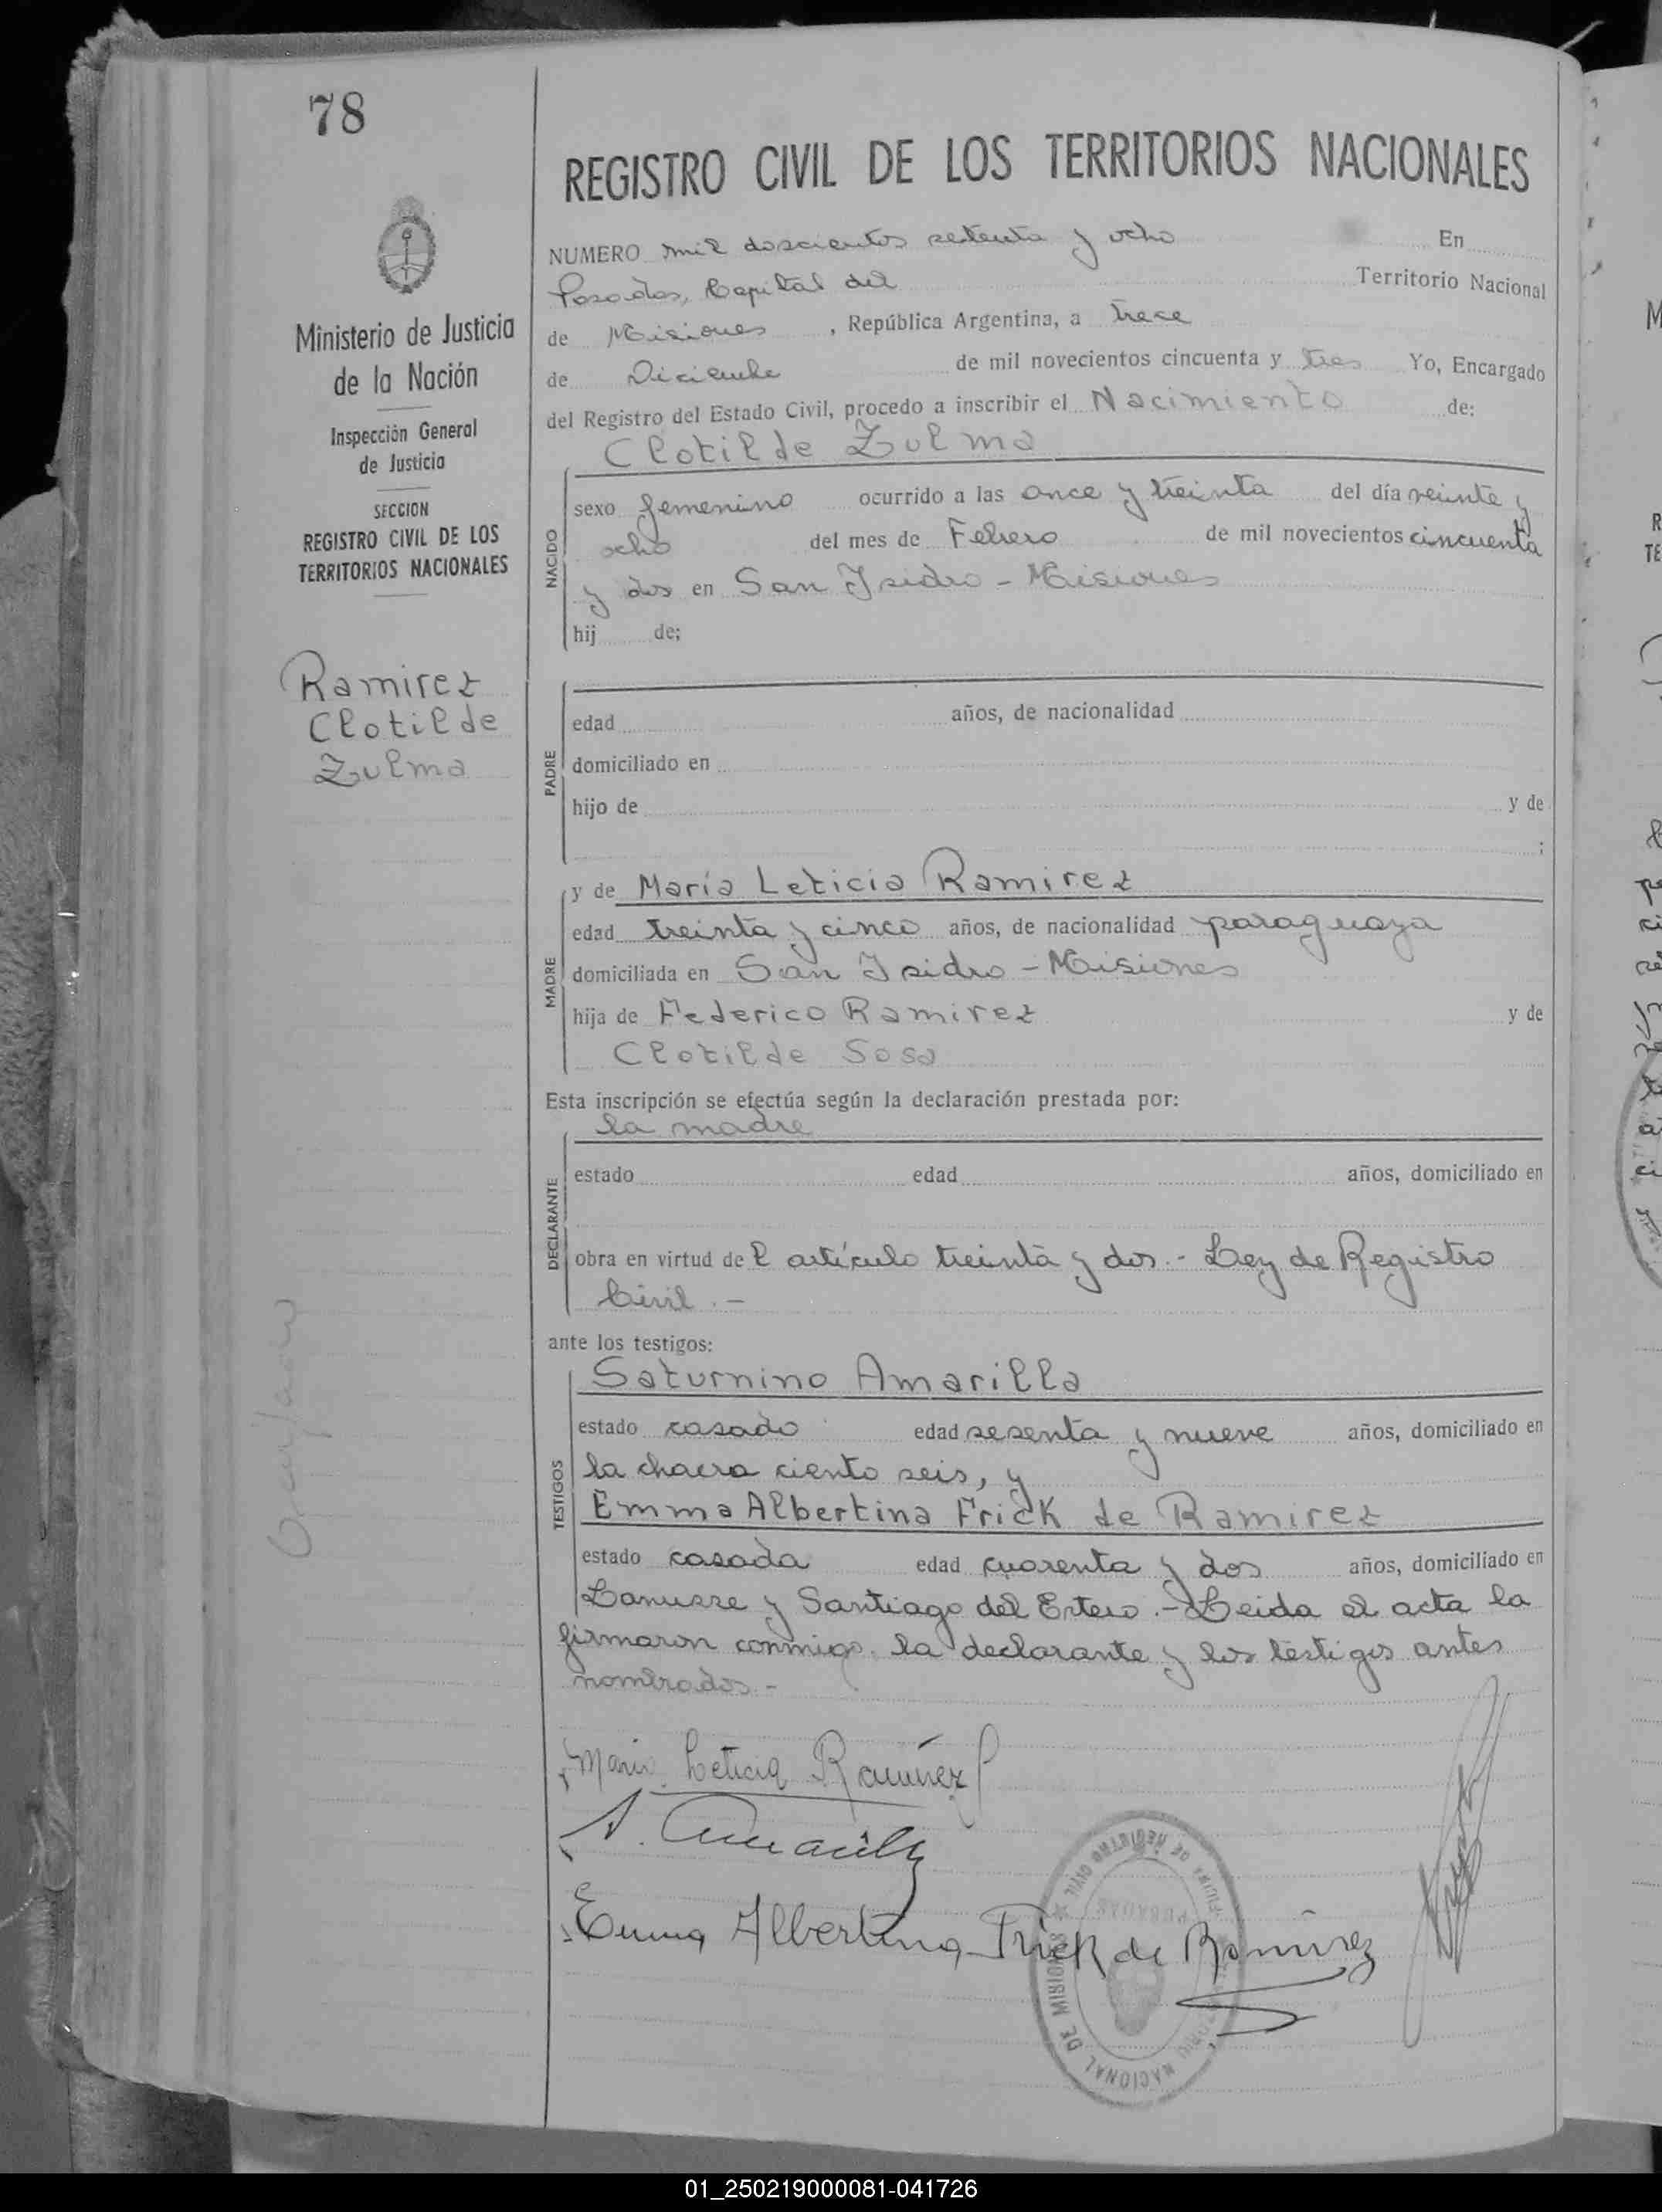 78
REGISTRO CIVIL DE LOS TERRITORIOS NACIONALES
NUMERO mil doscientos setenta y ocho En
Posadas, Capital del Territorio Nacional
de Misiones, República Argentina, a trece
de Diciembre de mil novecientos cincuenta y tres Yo, Encargado
del Registro del Estado Civil, procedo a inscribir el Nacimiento de:
Clotilde Zulma
Ministerio de Justicia
de la Nación
Inspección General
de Justicia
SECCION
REGISTRO CIVIL DE LOS
TERRITORIOS NACIONALES
Ramirez
Clotilde
Zulma
NACIDO
sexo femenino ocurrido a las once y treinta del día veinte y
ocho del mes de Febrero de mil novecientos cincuenta
y dos en San Isidro - Misiones
hij de;
PADRE
edad años, de nacionalidad
domiciliado en
hijo de y de
;
MADRE
y de María Leticia Ramirez
edad treinta y cinco años, de nacionalidad paraguaya
domiciliada en San Isidro - Misiones
hija de Federico Ramirez y de
Clotilde Sosa
Esta inscripción se efectúa según la declaración prestada por:
la madre
DECLARANTE
estado edad años, domiciliado en
obra en virtud del artículo treinta y dos.- Ley de Registro
Civil.-
ante los testigos:
TESTIGOS
Saturnino Amarilla
estado casado edad sesenta y nueve años, domiciliado en
la chacra ciento seis, y
Emma Albertina Frick de Ramirez
estado casada edad cuarenta y dos años, domiciliado en
Lanusse y Santiago del Estero.- Leida el acta la
firmaron conmigo la declarante y los testigos antes
nombrados.-
Maria Leticia Ramírez
S. Amarilla
Emma Albertina Frick de Ramirez
OFICINA DE REGISTRO CIVIL
POSADAS
TERRITORIO NACIONAL DE MISIONES
01_250219000081-041726